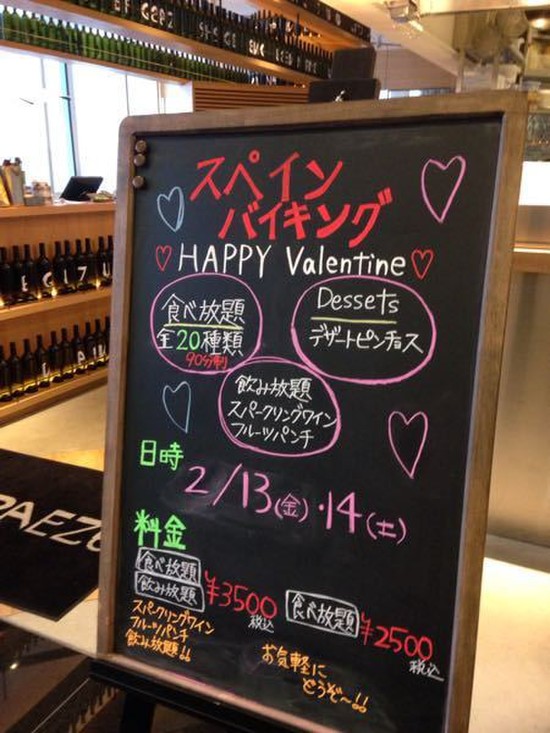 スペイン
バイキング
HAPPY Valentine
食べ放題
全20種類
90分制
Dessets
デザートピンチョス
飲み放題
スパークリングワイン
フルーツパンチ
日時
2/13(金)・14(土)
料金
食べ放題
飲み放題
¥3500
税込
スパークリングワイン
フルーツパンチ
飲み放題!!
食べ放題
¥2500
税込
お気軽に
どうぞ〜!!